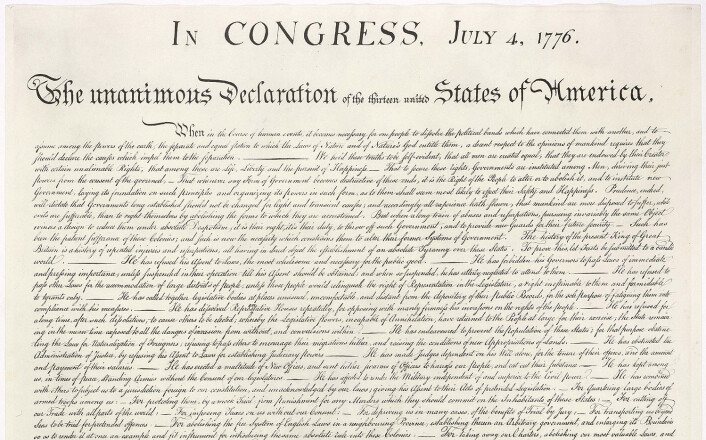 IN CONGRESS, JULY 4, 1776.
The unanimous Declaration of the thirteen united States of America,
When in the Course of human events, it becomes necessary for one people to dissolve the political bands which have connected them with another, and to
assume among the powers of the earth, the separate and equal station to which the Laws of Nature and of Nature's God entitle them, a decent respect to the opinions of mankind requires that they
should declare the causes which impel them to the separation. — We hold these truths to be self-evident, that all men are created equal, that they are endowed by their Creator
with certain unalienable Rights, that among these are Life, Liberty and the pursuit of Happiness. — That to secure these rights, Governments are instituted among Men, deriving their just
powers from the consent of the governed, — That whenever any Form of Government becomes destructive of these ends, it is the Right of the People to alter or to abolish it, and to institute new
Government, laying its foundation on such principles and organizing its powers in such form, as to them shall seem most likely to effect their Safety and Happiness. Prudence, indeed,
will dictate that Governments long established should not be changed for light and transient causes; and accordingly all experience hath shewn, that mankind are more disposed to suffer, while
evils are sufferable, than to right themselves by abolishing the forms to which they are accustomed. But when a long train of abuses and usurpations, pursuing invariably the same Object
evinces a design to reduce them under absolute Despotism, it is their right, it is their duty, to throw off such Government, and to provide new Guards for their future security. — Such has
been the patient sufferance of these Colonies; and such is now the necessity which constrains them to alter their former Systems of Government. The history of the present King of Great
Britain is a history of repeated injuries and usurpations, all having in direct object the establishment of an absolute Tyranny over these States. To prove this, let Facts be submitted to a candid
world. — He has refused his Assent to Laws, the most wholesome and necessary for the public good. — He has forbidden his Governors to pass Laws of immediate
and pressing importance, unless suspended in their operation till his Assent should be obtained; and when so suspended, he has utterly neglected to attend to them. — He has refused to
pass other Laws for the accommodation of large districts of people, unless those people would relinquish the right of Representation in the Legislature, a right inestimable to them and formidable
to tyrants only. — He has called together legislative bodies at places unusual, uncomfortable, and distant from the depository of their Public Records, for the sole purpose of fatiguing them into
compliance with his measures. — He has dissolved Representative Houses repeatedly, for opposing with manly firmness his invasions on the rights of the people. — He has refused for
a long time, after such dissolutions, to cause others to be elected; whereby the Legislative powers, incapable of Annihilation, have returned to the People at large for their exercise; the State remain
ing in the mean time exposed to all the dangers of invasion from without, and convulsions within. — He has endeavoured to prevent the population of these States; for that purpose obstruc
ting the Laws for Naturalization of Foreigners; refusing to pass others to encourage their migrations hither, and raising the conditions of new Appropriations of Lands. — He has obstructed the
Administration of Justice, by refusing his Assent to Laws for establishing Judiciary powers. — He has made Judges dependent on his Will alone, for the tenure of their offices, and the amount
and payment of their salaries. — He has erected a multitude of New Offices, and sent hither swarms of Officers to harrass our people, and eat out their substance. — He has kept among
us, in times of peace, Standing Armies without the Consent of our legislatures. — He has affected to render the Military independent of and superior to the Civil power. — He has combined
with others to subject us to a jurisdiction foreign to our constitution, and unacknowledged by our laws; giving his Assent to their Acts of pretended Legislation: — For Quartering large bodies of
armed troops among us: — For protecting them, by a mock Trial, from punishment for any Murders which they should commit on the Inhabitants of these States: — For cutting off
our Trade with all parts of the world: — For imposing Taxes on us without our Consent: — For depriving us in many cases, of the benefits of Trial by Jury: — For transporting us beyond
Seas to be tried for pretended offences: — For abolishing the free System of English Laws in a neighbouring Province, establishing therein an Arbitrary government, and enlarging its Boundaries
so as to render it at once an example and fit instrument for introducing the same absolute rule into these Colonies: — For taking away our Charters, abolishing our most valuable Laws, and